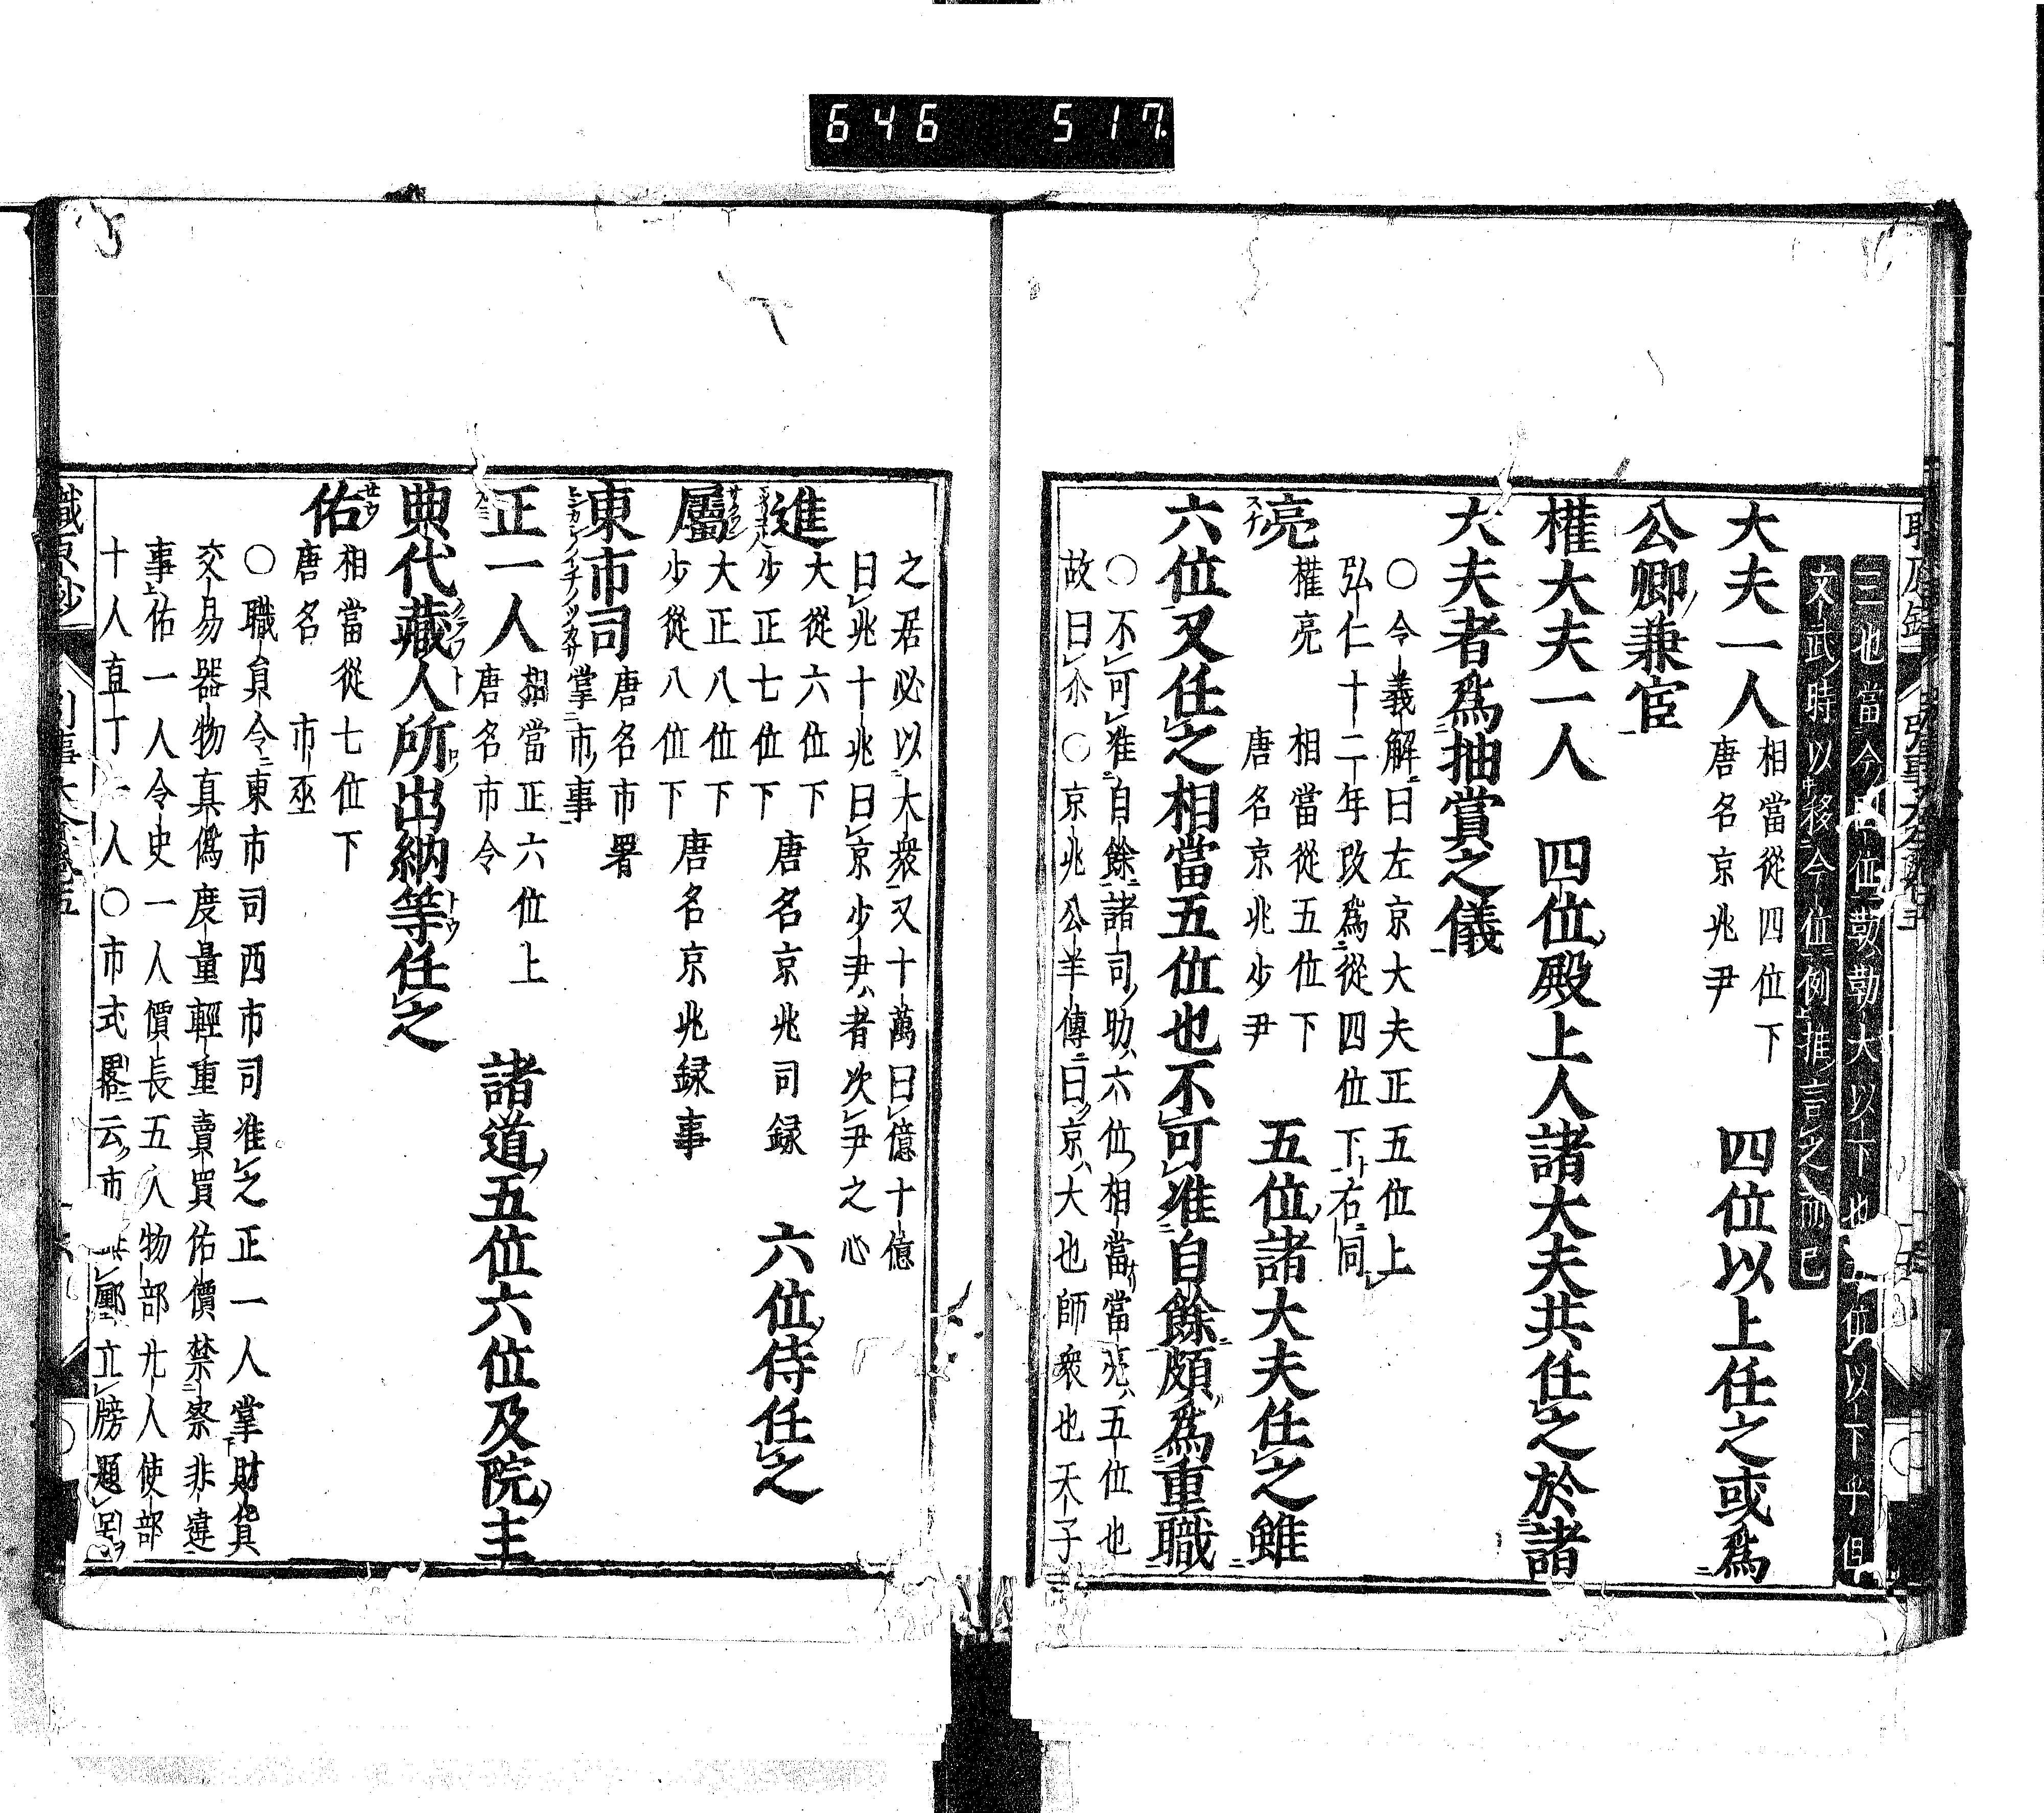 646 517
三也當今
大以下也
位以下乎但
文武時以移今位例推言之而已
大夫一人 相當從四位下 唐名京兆尹 四位以上任之或爲
公卿兼官
權大夫一人 四位殿上人諸大夫共任之於諸
大夫者爲抽賞之儀
〇令義解曰左京大夫正五位上
弘仁十二年改爲從四位下右同
亮 權亮 相當從五位下 唐名京兆少尹 五位諸大夫任之雖
六位又任之相當五位也不可准自餘頗爲重職
〇不可准自餘諸司助六位相當當亮五位也
故曰尒〇京兆公羊傳曰京大也師衆也天子
之居必以大衆又十萬曰億十億
曰兆十兆曰京少尹者次尹之心
進 大從六位下 少正七位下 唐名京兆司録 六位侍任之
屬 大正八位下 少從八位下 唐名京兆録事
東市司 唐名市署 掌市事
正一人 相當正六位上 唐名市令 諸道五位六位及院主
典代藏人所出納等任之
佑 相當從七位下 唐名 市丞
〇職員令東市司西市司准之正一人掌財貨
交易器物真僞度量輕重賣買估價禁察非違
事佑一人令史一人價長五人物部廿人使部
十人直丁一人〇市式畧云市
廛立牓題号
職原抄